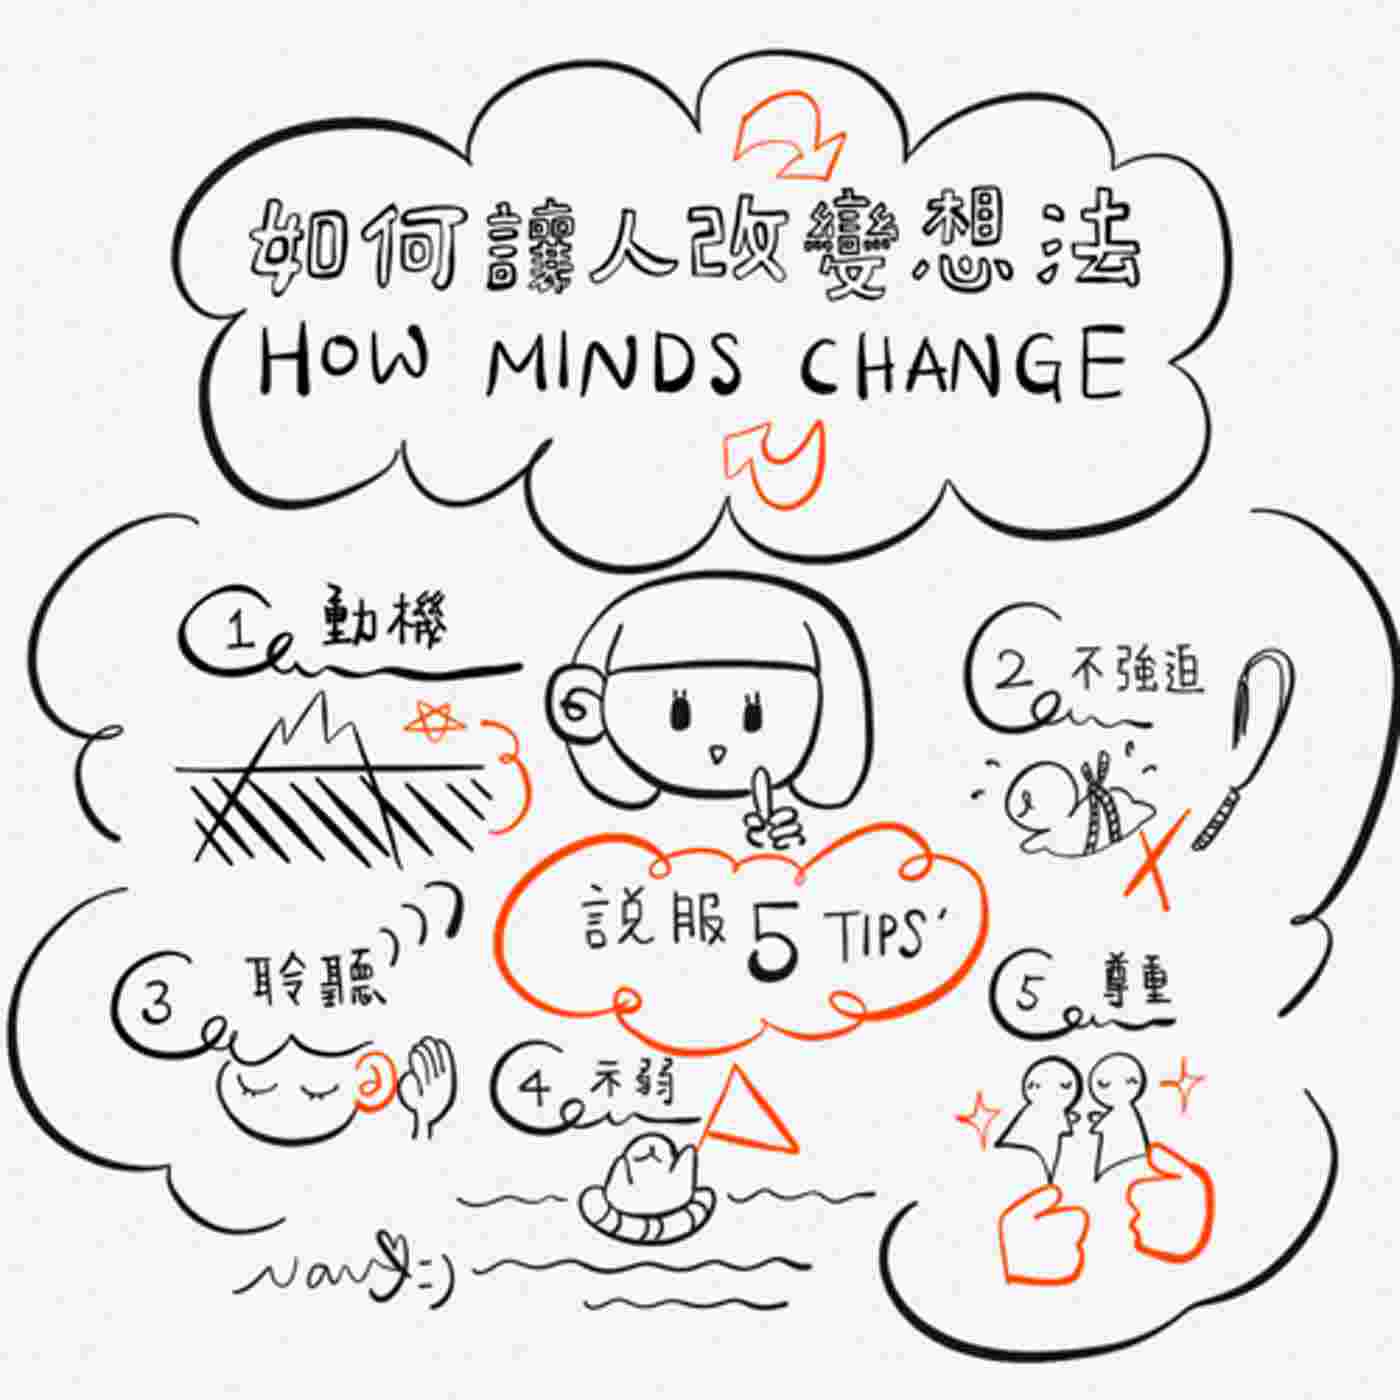 如何讓人改變想法
HOW MINDS CHANGE
1 動機
2 不強迫
說服 5 TIPS'
3 聆聽
4 示弱
5 尊重